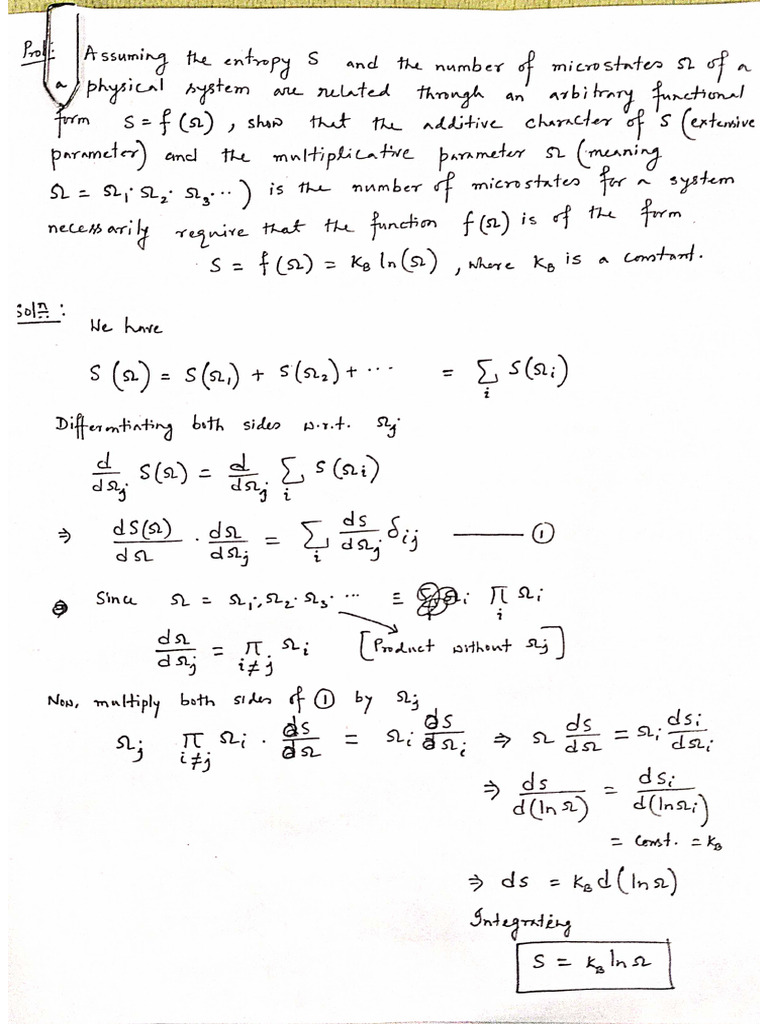 Prob: Assuming the entropy S and the number of microstates Ω of a
a physical system are related through an arbitrary functional
form S = f(Ω), show that the additive character of S (extensive
parameter) and the multiplicative parameter Ω (meaning
Ω = Ω₁· Ω₂· Ω₃···) is the number of microstates for a system
necessarily require that the function f(Ω) is of the form
S = f(Ω) = K_B ln(Ω), where K_B is a constant.
Solⁿ:
We have
S(Ω) = S(Ω₁) + S(Ω₂) + ··· = Σ_i S(Ω_i)
Differentiating both sides w.r.t. Ω_j
d/dΩ_j S(Ω) = d/dΩ_j Σ_i S(Ω_i)
⇒ dS(Ω)/dΩ · dΩ/dΩ_j = Σ_i ds/dΩ_j δ_ij —— ①
Since Ω = Ω₁·Ω₂·Ω₃· ··· ≡ Π_i Ω_i
dΩ/dΩ_j = Π_{i≠j} Ω_i [Product without Ω_j]
Now, multiply both sides of ① by Ω_j
Ω_j Π_{i≠j} Ω_i · ds/dΩ = Ω_i ds/dΩ_i ⇒ Ω ds/dΩ = Ω_i ds_i/dΩ_i
⇒ ds/d(ln Ω) = ds_i/d(lnΩ_i)
= const. = K_B
⇒ ds = K_B d(lnΩ)
Integrating
S = K_B ln Ω